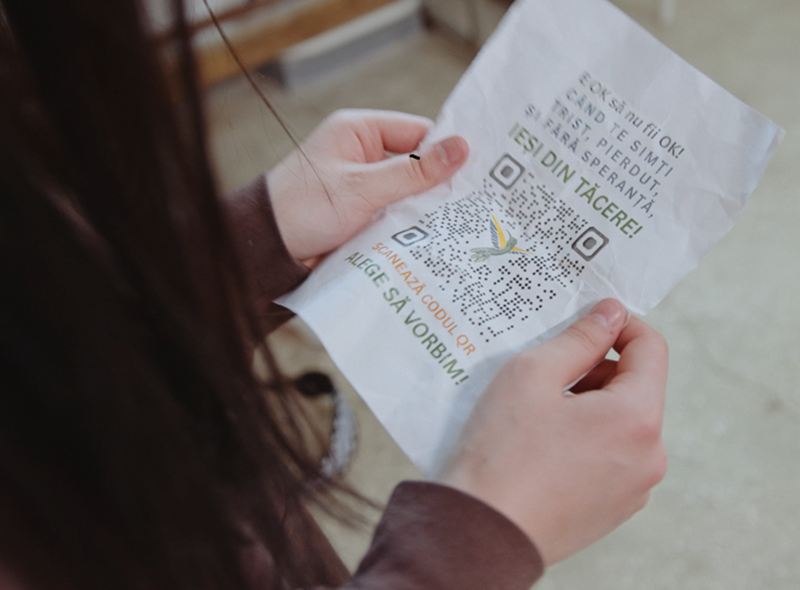 E OK să nu fii OK!
CÂND TE SIMȚI
TRIST, PIERDUT,
ȘI FĂRĂ SPERANȚĂ,
IEȘI DIN TĂCERE!
SCANEAZĂ CODUL QR
ALEGE SĂ VORBIM!